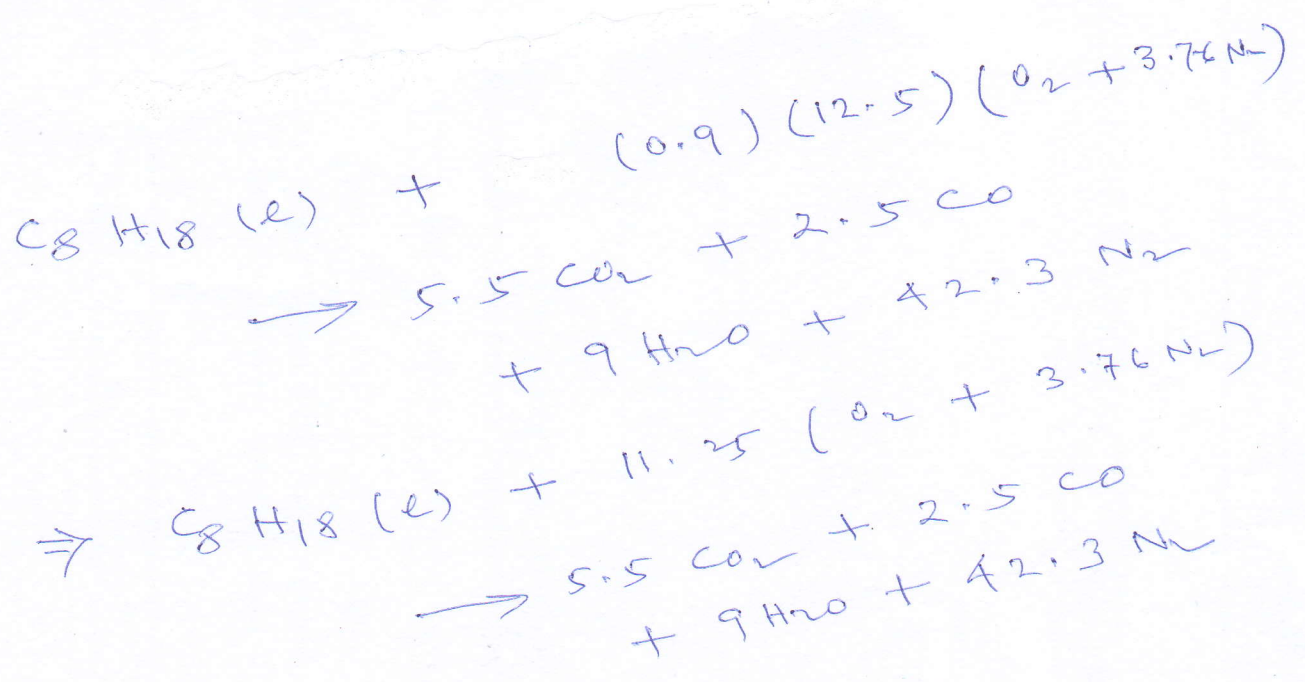 C8 H18 (l) + (0.9) (12.5) (O2 + 3.76 N2)
→ 5.5 CO2 + 2.5 CO
+ 9 H2O + 42.3 N2
⇒ C8 H18 (l) + 11.25 (O2 + 3.76 N2)
→ 5.5 CO2 + 2.5 CO
+ 9 H2O + 42.3 N2